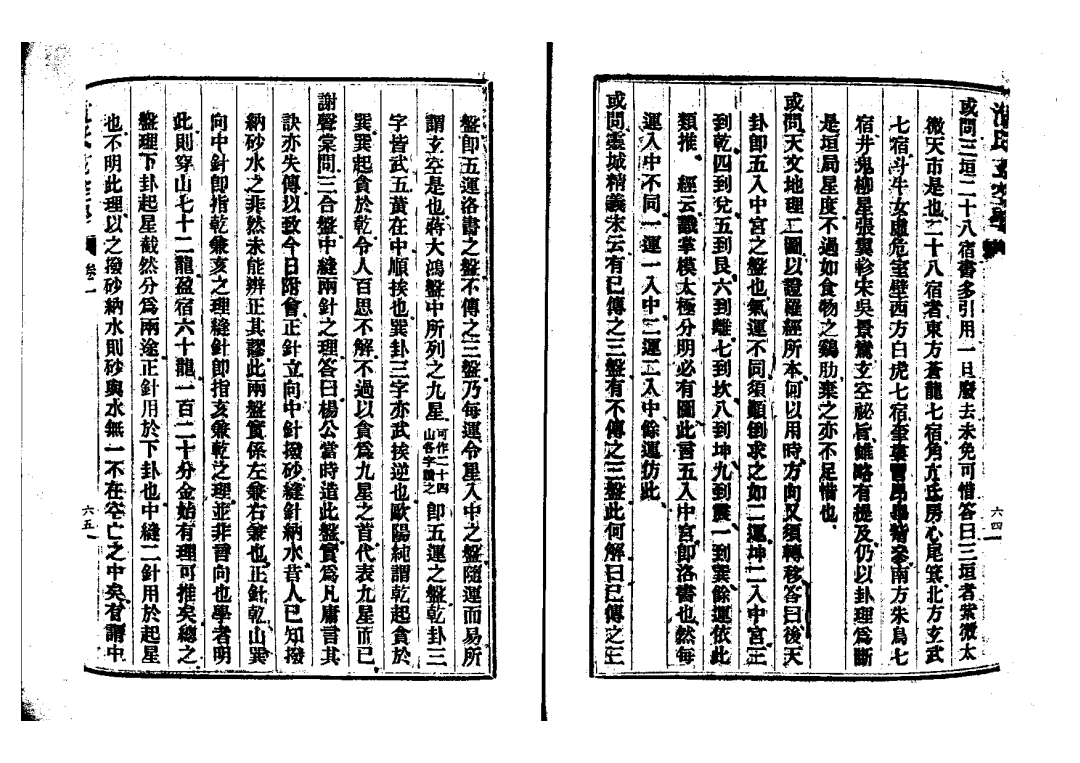 沈氏玄空學
或問三垣二十八宿書多引用一旦廢去未免可惜答曰三垣者紫微太
微天市是也二十八宿者東方蒼龍七宿角亢氐房心尾箕北方玄武
七宿斗牛女虛危室壁西方白虎七宿奎婁胃昴畢觜參南方朱鳥七
宿井鬼柳星張翼軫宋吳景鸞玄空祕旨雖略有提及仍以卦理爲斷
是垣局星度不過如食物之鷄肋棄之亦不足惜也
或問天文地理二圖以證羅經所本何以用時方向又須轉移答曰後天
卦卽五入中宮之盤也氣運不同須顚倒求之如二運坤二入中宮三
到乾四到兌五到艮六到離七到坎八到坤九到震一到巽餘運依此
類推　經云識掌模太極分明必有圖此言五入中宮卽洛書也然每
運入中不同一運一入中二運二入中餘運仿此
或問靈城精義末云有已傳之三盤有不傳之三盤此何解曰已傳之三
六四
盤卽五運洛書之盤不傳之三盤乃每運令星入中之盤隨運而易所
謂玄空是也蔣大鴻盤中所列之九星可作二十四山各字讀之卽五運之盤乾卦三
字皆武五黃在中順挨也巽卦三字亦武挨逆也歐陽純謂乾起貪於
巽巽起貪於乾令人百思不解不過以貪爲九星之首代表九星而已
謝聲棠問三合盤中縫兩針之理答曰楊公當時造此盤實爲凡庸言其
訣亦失傳以致今日附會正針立向中針撥砂縫針納水昔人已知撥
納砂水之非然未能辨正其謬此兩盤實係左兼右兼也正針乾山巽
向中針卽指乾兼亥之理縫針卽指亥兼乾之理並非言向也學者明
此則穿山七十二龍盈宿六十龍一百二十分金始有理可推矣總之
盤理下卦起星截然分爲兩途正針用於下卦也中縫二針用於起星
也不明此理以之撥砂納水則砂與水無一不在空亡之中矣有謂中
卷二
六五